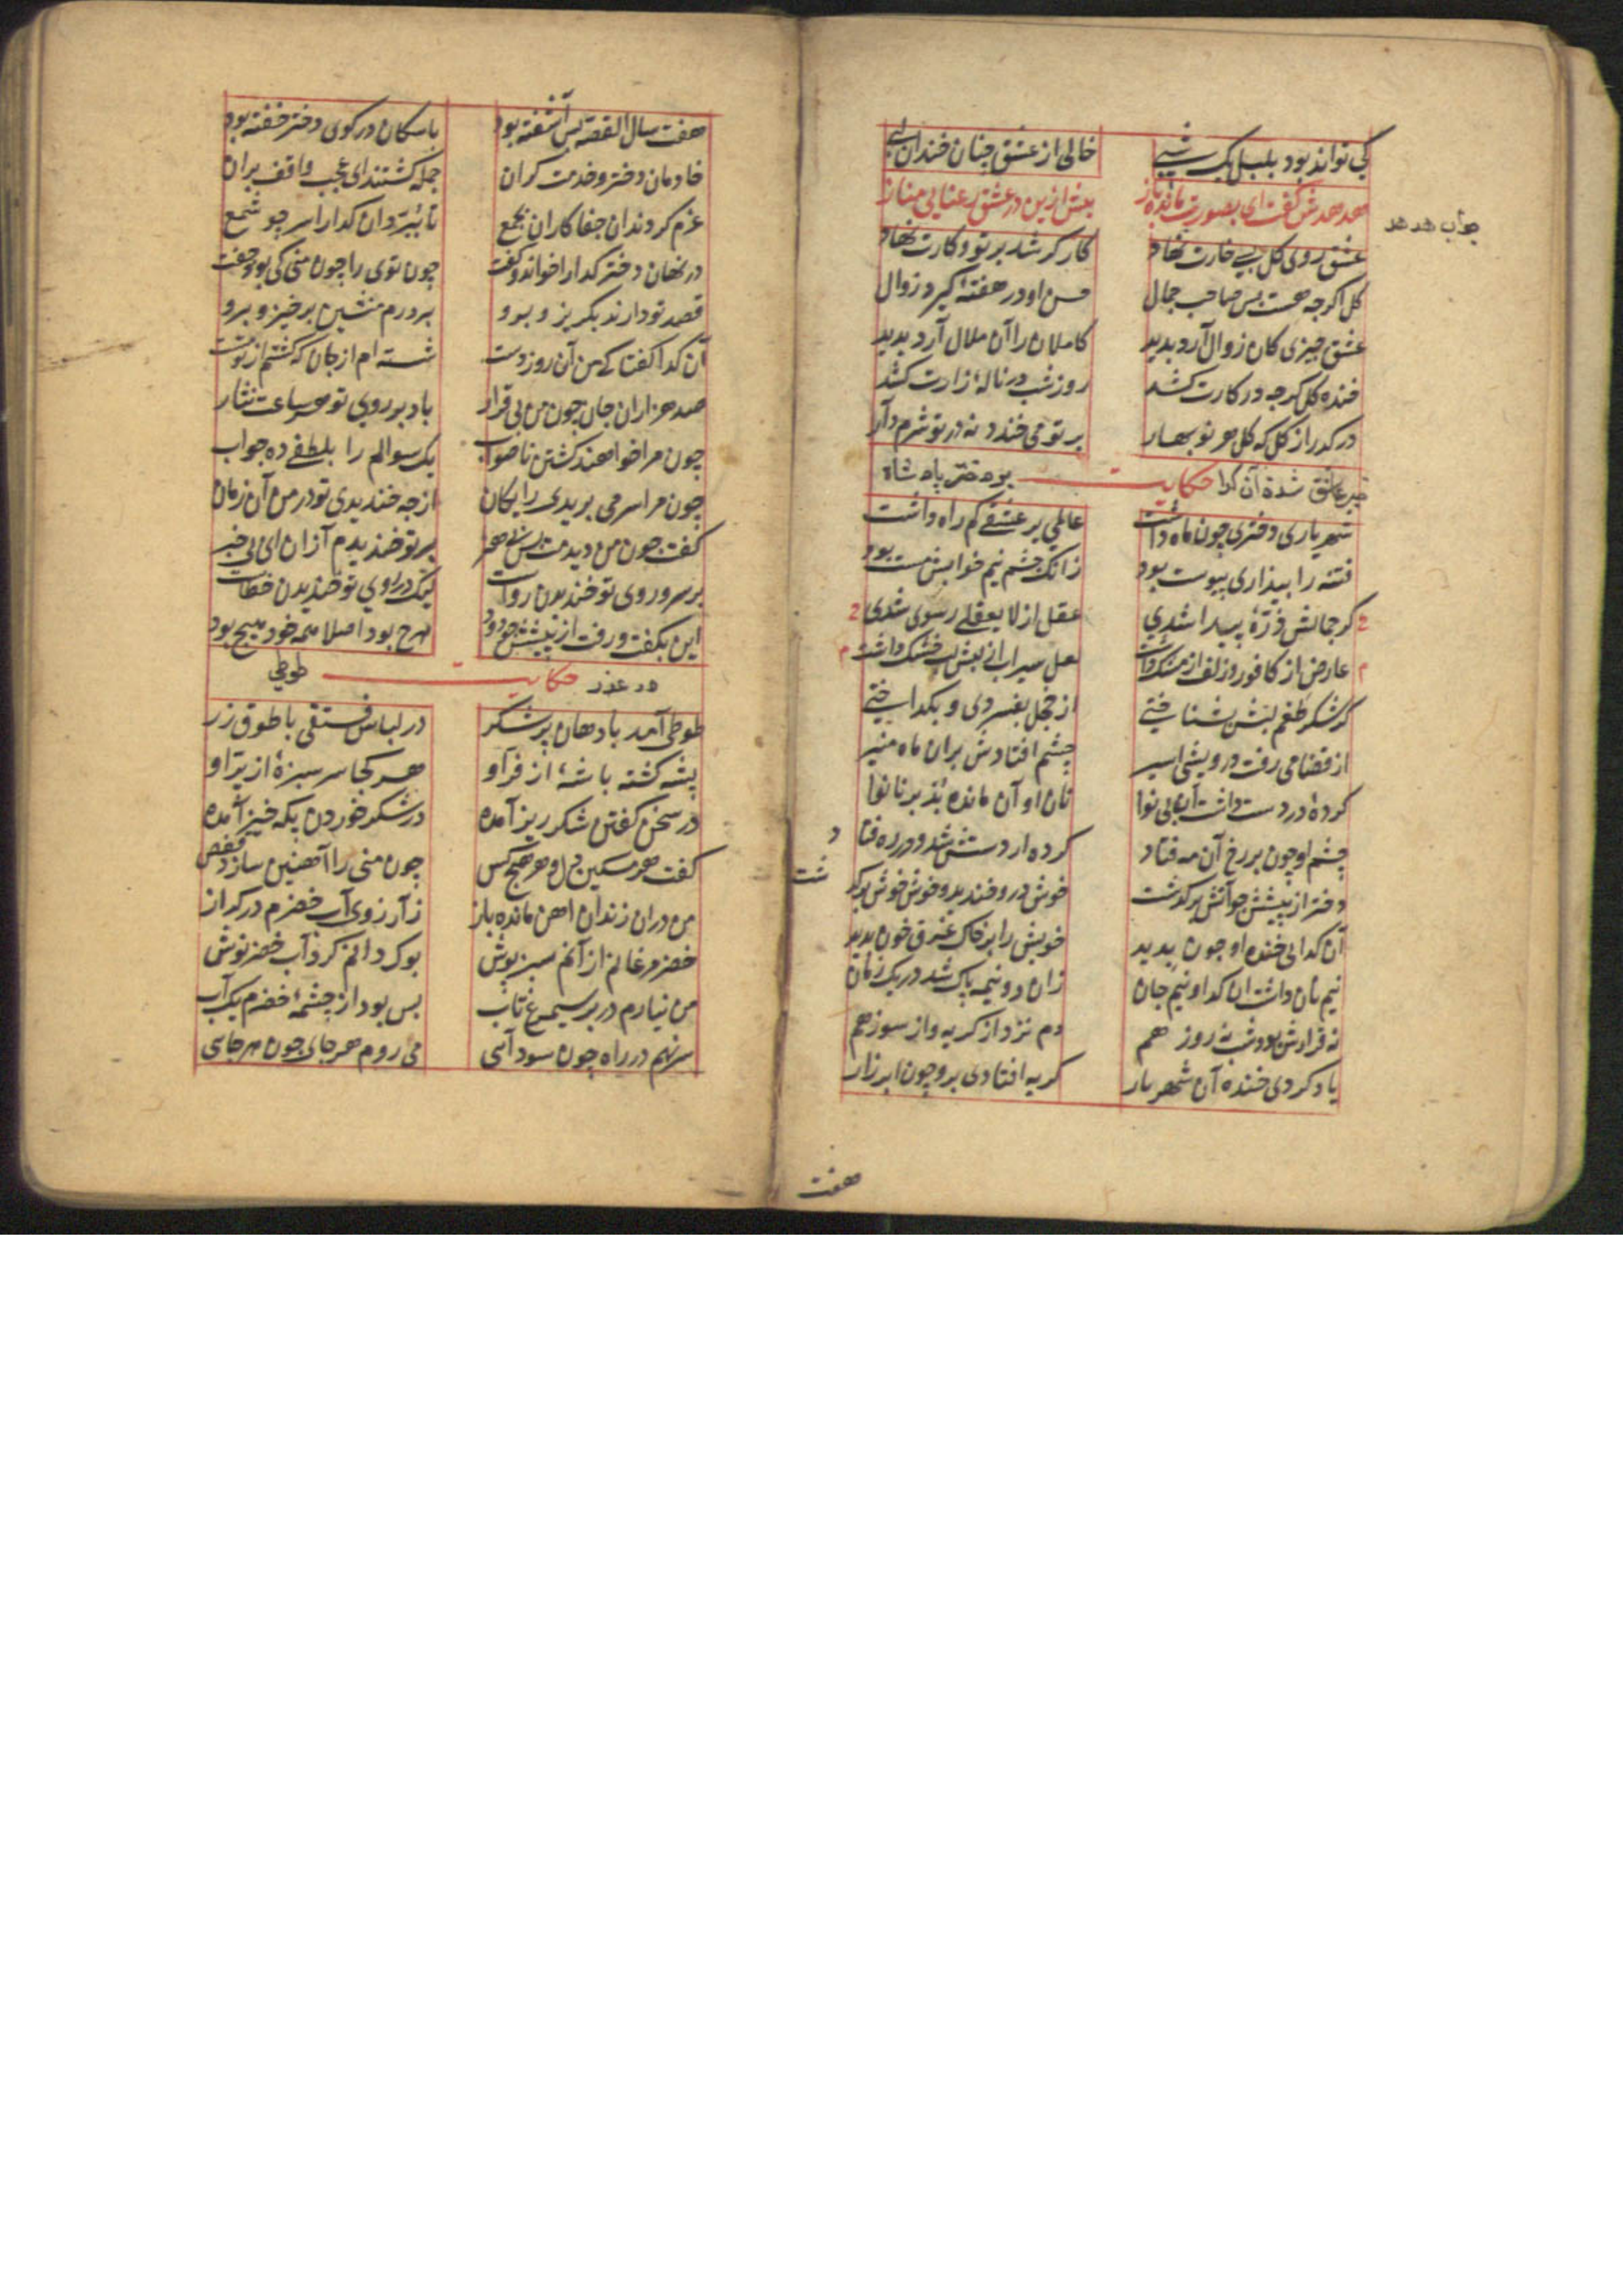 کی تواند بود بلبل یک شبی خالی از عشق چنان خندان لبی
هدهدش گفت ای بصورت مانده باز بیش ازین در عشق رعنایی مناز
جواب هدهد
عشق روی گل بسی خارت نهاد کارگر شد بر تو و کارت نهاد
گل اگرچه هست بس صاحب جمال حسن او در هفتهٔ گیرد زوال
عشق چیزی کان زوال آرد پدید کاملان را آن ملال آرد پدید
خندهٔ گل گرچه در کارت کشد روز شب در نالهٔ زارت کشد
درگذر از گل که گل هر نوبهار بر تو می خندد نه در تو شرم دار
عاشق شدن آن گدا حکایت بر دختر پادشاه
شهریاری دختری چون ماه داشت عالمی پر عشق گم راه داشت
فتنه را بیداری پیوست بود زانک چشم نیم خوابش مست بود
گر جمالش ذرهٔ پیدا شدی عقل از لایعقلی رسوی شدی
عارض از کافور و زلف از مشک داشت لعل سیراب از لبش لب خشک داشت
گر شکر طعم لبش بشناختی از خجل بفسردی و بگداختی
از قضا می رفت درویشی اسیر چشم افتادش بر آن ماه منیر
گردهٔ در دست داشت آن بی نوا نان او آن مانده بد بر نانوا
چشم او چون بر رخ آن مه فتاد گرده از دستش شد و در ره فتاد
دختر از پیشش چو آتش برگذشت خوش درو خندید و خوش خوش برگذشت
آن گدا آن خندهٔ او چون بدید خویش را بر خاک غرق خون بدید
نیم نان داشت آن گدا و نیم جان زان دو نیمه پاک شد در یک زمان
نه قرارش بود شب نه روز هم دم نزد از گریه و از سوز هم
یاد کردی خندهٔ آن شهریار گریه افتادی برو چون ابر زار
هفت
هفت سال القصه بس آشفته بود با سگان در کوی دختر خفته بود
خادمان دختر و خدمت گران جمله گشتند ای عجب واقف بران
عزم کردند آن جفاکاران بجمع تا ببرند آن گدا را سر چو شمع
در نهان دختر گدا را خواند و گفت چون توی را چون منی کی بود جفت
قصد تو دارند بگریز و برو بر درم منشین برخیز و برو
آن گدا گفتا که من آن روز دست شسته ام از جان که گشتم از تو مست
صد هزاران جان چون من بی قرار باد بر روی تو هر ساعت نثار
چون مرا خواهند کشتن ناصواب یک سوالم را بلطفی ده جواب
چون مرا سر می بریدی رایگان از چه خندیدی تو در من آن زمان
گفت چون من دیدمت بس بی هنر بر تو خندیدم آزان ای بی خبر
بر سر و روی تو خندیدن رواست لیک در روی تو خندیدن خطاست
این بگفت و رفت از پیشش چو دود هرچ بود اصلا همه خود هیچ بود
در عذر حکایت طوطی
طوطی آمد با دهان پر شکر در لباس فستقی با طوق زر
پشه گشته باشهٔ از فر او هر کجا سرسبزهٔ از پر او
در سخن گفتن شکرریز آمده در شکر خوردن پگه خیز آمده
گفت هر سنگین دل و هر هیچ کس چون منی را آهنین سازد قفص
من در آن زندان آهن مانده باز ز آرزوی آب خضرم در گداز
خضر مرغانم از آنم سبزپوش بوک دانم کرد آب خضر نوش
من نیارم در بر سیمرغ تاب بس بود از چشمهٔ خضرم یک آب
سر نهم در راه چون سودایی می روم هر جای چون هرجایی